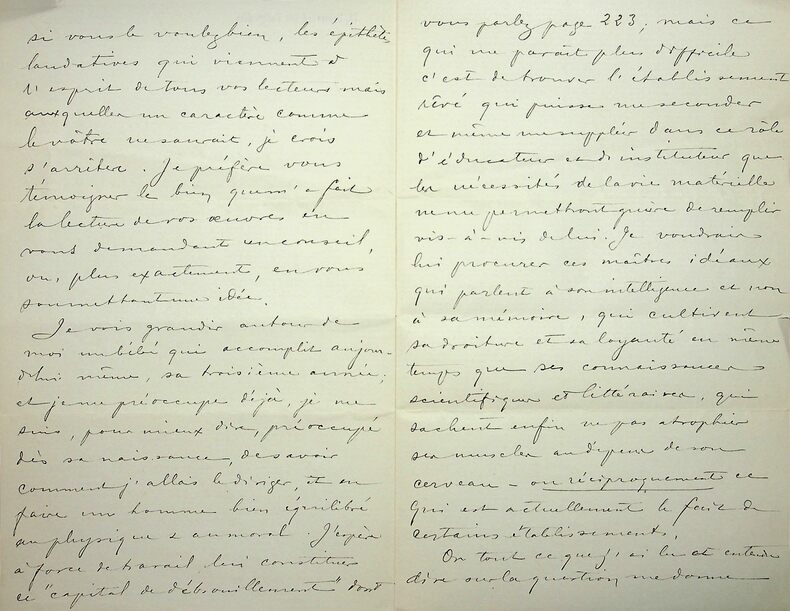 si vous le voulez bien, les épithètes
laudatives qui viennent à
l'esprit de tous vos lecteurs mais
auxquelles un caractère comme
le vôtre ne saurait, je crois
s'arrêter. Je préfère vous
témoigner le bien que m'a fait
la lecture de vos œuvres en
vous demandant un conseil,
ou, plus exactement, en vous
soumettant une idée.
Je vois grandir autour de
moi un bébé qui accomplit aujour-
d'hui même, sa troisième année;
et je me préoccupe déjà, je me
suis, pour mieux dire, préoccupé
dès sa naissance, de savoir
comment j'allais le diriger, et en
faire un homme bien équilibré
au physique & au moral. J'espère
à force de travail lui constituer
ce "capital de débrouillement" dont
vous parlez page 223; mais ce
qui me paraît plus difficile
c'est de trouver l'établissement
rêvé qui puisse me seconder
et même me suppléer dans ce rôle
d'éducateur et d'instituteur que
les nécessités de la vie matérielle
ne me permettront guère de remplir
vis-à-vis de lui. Je voudrais
lui procurer ces maîtres idéaux
qui parlent à son intelligence et non
à sa mémoire, qui cultivent
sa droiture et sa loyauté en même
temps que ses connaissances
scientifiques et littéraires, qui
sachent enfin ne pas atrophier
ses muscles au dépens de son
cerveau - ou réciproquement ce
qui est actuellement le fait de
certains établissements.
Or tout ce que j'ai lu et entendu
dire sur la question me donne